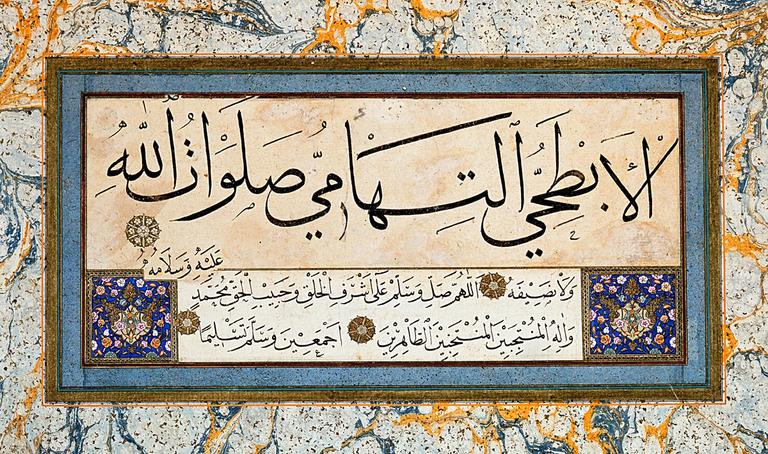 الأَبْطَحِيُّ ٱلتِّهَامِيُّ صَلَوَاتُ اللّٰهِ
عَلَيْهِ وَسَلَامُهُ
وَلَا نَصِيفَهُ اللّٰهُمَّ صَلِّ وَسَلِّمْ عَلَى اَشْرَفِ الْخَلْقِ وَحَبِيبِ الْحَقِّ مُحَمَّدٍ
وَاٰلِهِ الْمُنْتَجَبِينَ الْمُنْتَخَبِينَ الطَّاهِرِينَ اَجْمَعِينَ وَسَلَّمَ تَسْلِيمًا